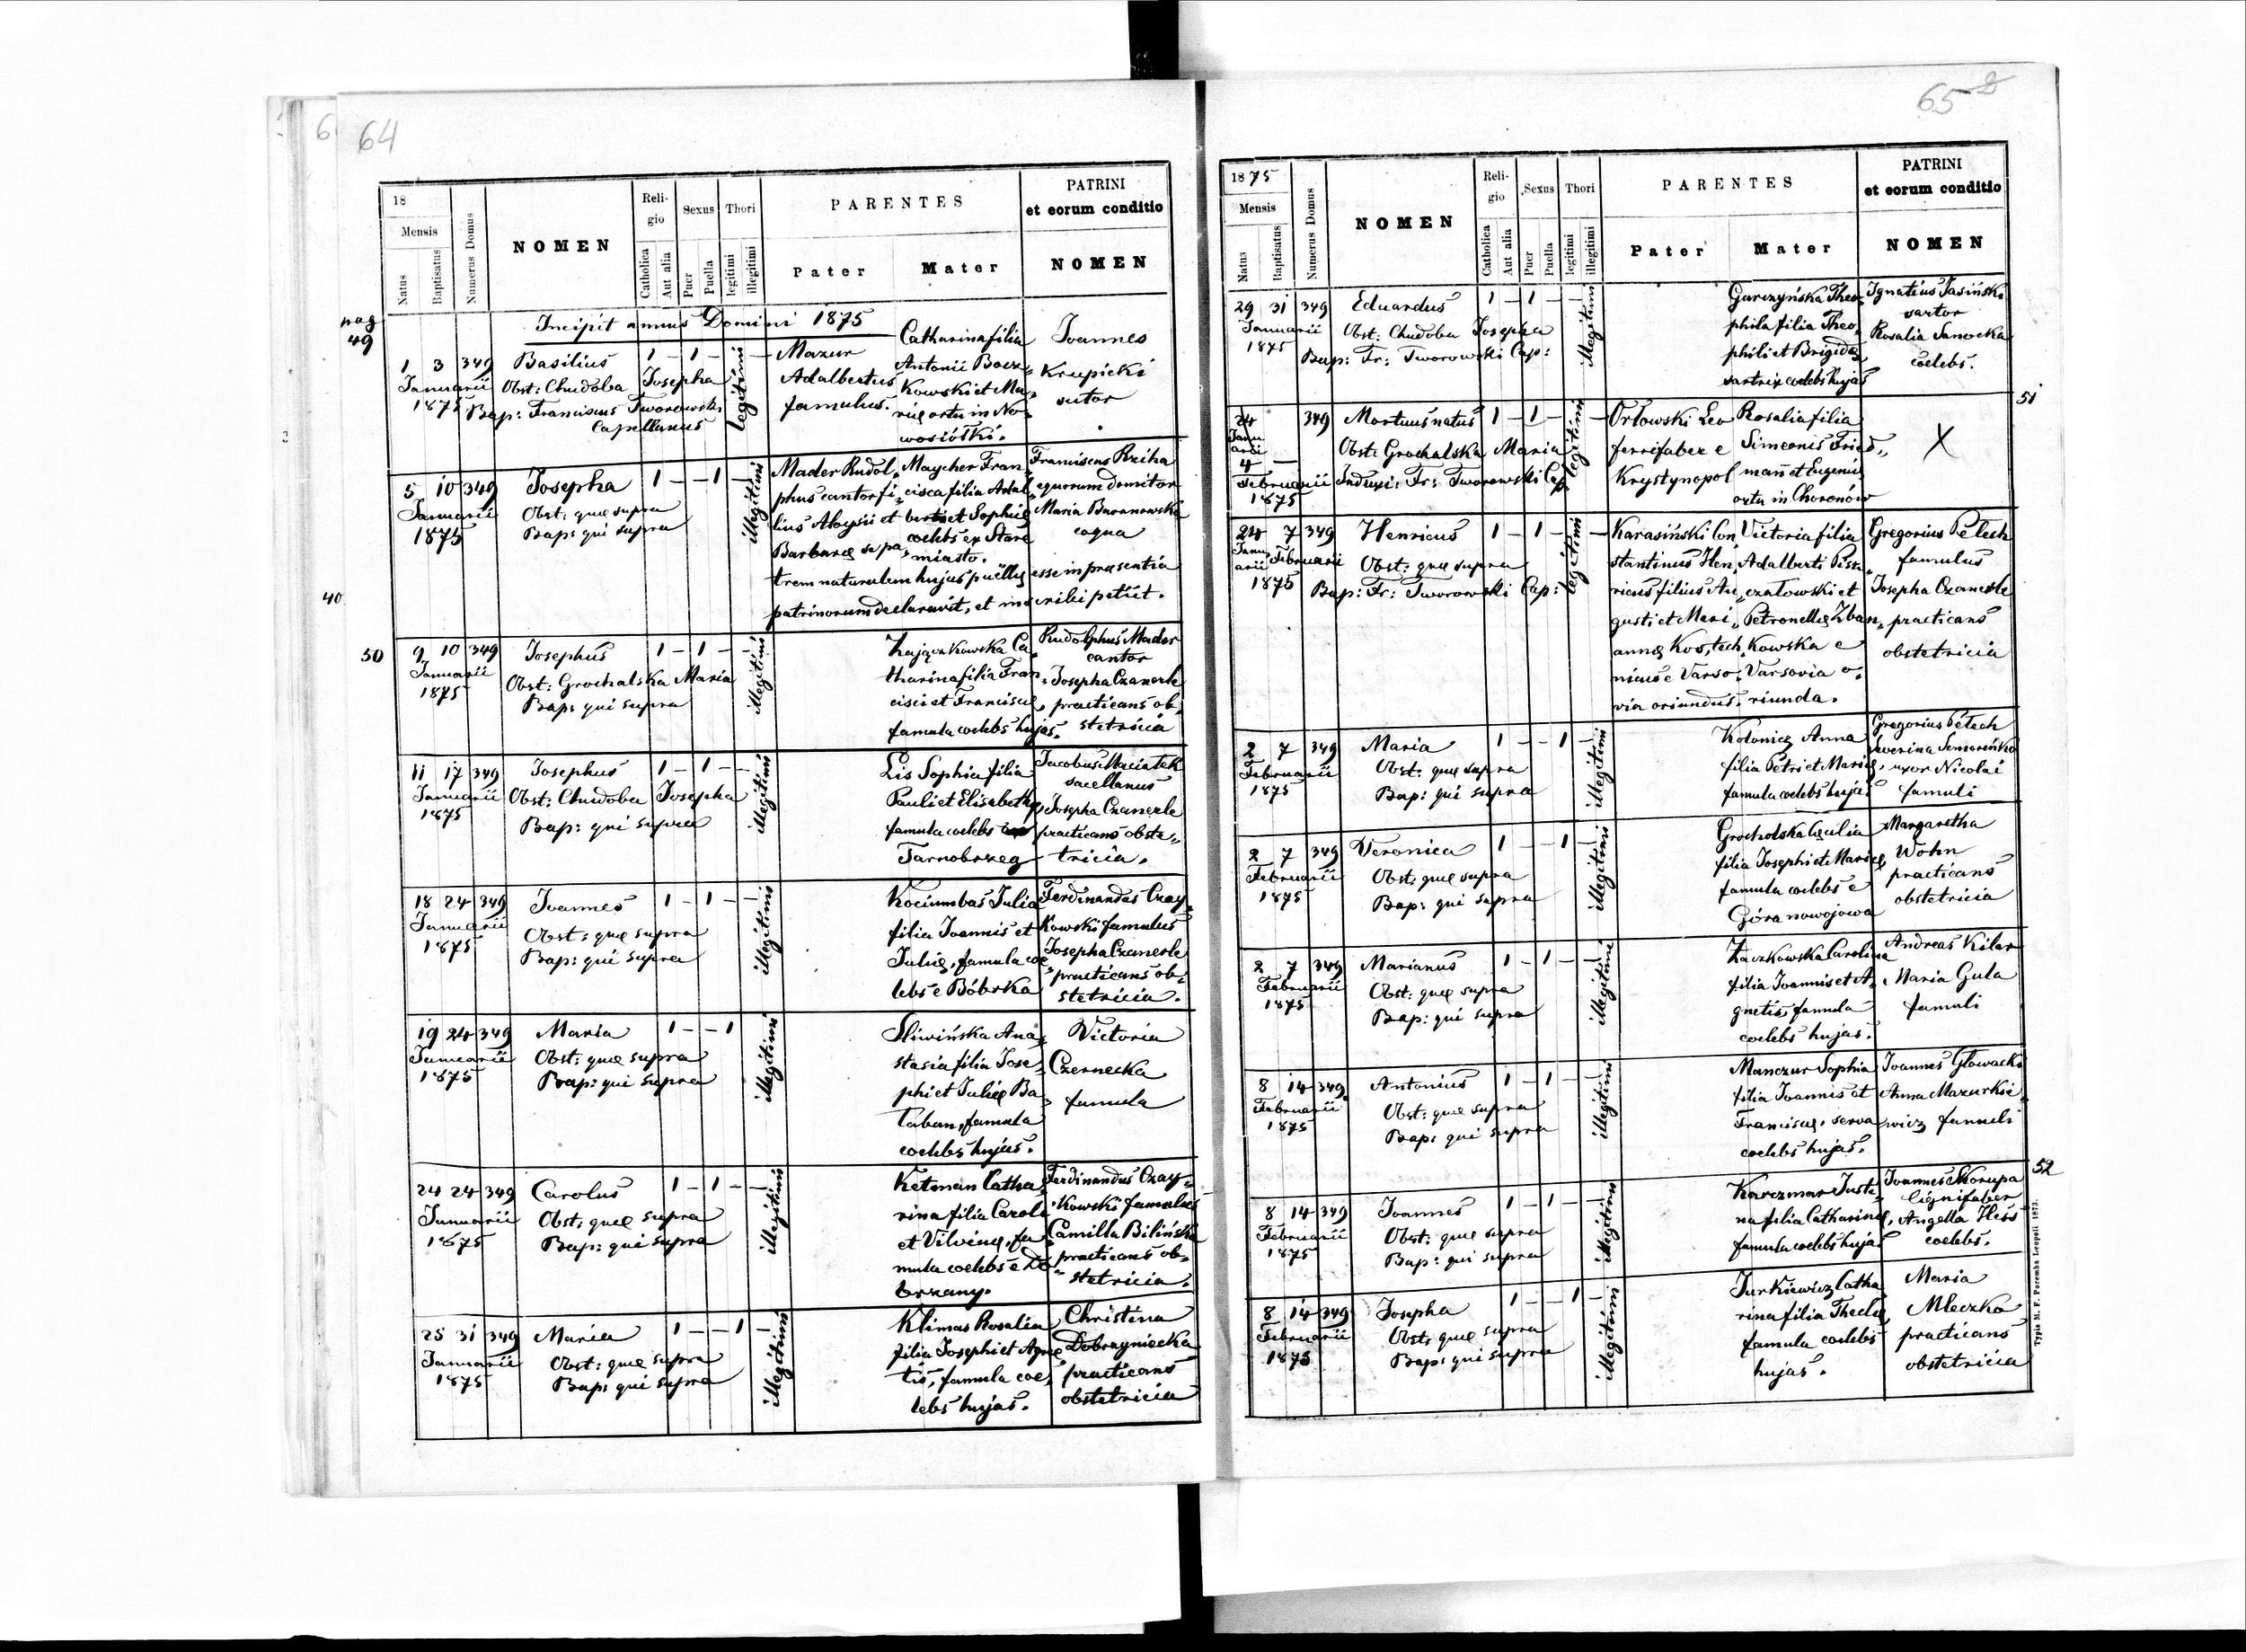 64
18
Mensis
Natus
Baptisatus
Numerus Domus
NOMEN
Religio
Catholica
Aut alia
Sexus
Puer
Puella
Thori
legitimi
illegitimi
PARENTES
Pater
Mater
PATRINI
et eorum conditio
NOMEN
pag
49
Incipit annus Domini 1875
1 3 349 Basilius 1 - 1 - legitimi
Januarii Obst: Chudoba Josepha
1875 Bap: Franciscus Tworowski
Capellanus
Mazur
Adalbertus
famulus.
Catharina filia
Antonii Bacz„
kowski et Ma„
rię orta in No„
wosiółki.
Joannes
Krupicki
sutor
5 10 349 Josepha 1 - - 1 illegitimi
Januarii Obst: quę supra
1875 Bap: qui supra
Mader Rudol„
phus cantor fi„
lius Aloysii et
Barbarę se pa„
Maycher Fran„
cisca filia Adal„
berti et Sophię
coelebs ex Stare
miasto.
trem naturalem hujus puellę esse in presentia
patrinorum declaravit, et inscribi petiit.
Franciscus Rziha
equorum domitor
Maria Baranowska
coqua
40
50
9 10 349 Josephus 1 - 1 - illegitimi
Januarii Obst: Grochalska Maria
1875 Bap: qui supra
Zajączkowska Ca„
tharina filia Fran„
cisci et Franciscę,
famula coelebs hujas.
Rudolphus Mader
cantor
Josepha Czanerle
practicans ob„
stetricia
11 17 349 Josephus 1 - 1 - illegitimi
Januarii Obst: Chudoba Josepha
1875 Bap: qui supra
Lis Sophia filia
Pauli et Elisabethę,
famula coelebs
Tarnobrzeg
Jacobus Maciatek
sacellanus
Josepha Czanerle
practicans obste„
tricia.
18 24 349 Joannes 1 - 1 - illegitimi
Januarii Obst: quę supra
1875 Bap: qui supra
Kociumbas Julia
filia Joannis et
Julię, famula coe„
lebs e Bóbrka
Ferdinandus Czay„
kowski famulus
Josepha Czanerle
practicans ob„
stetricia.
19 24 349 Maria 1 - - 1 illegitimi
Januarii Obst: quę supra
1875 Bap: qui supra
Sliwińska Ana„
stasia filia Jose„
phi et Julię Ba„
łaban, famula
coelebs hujas.
Victoria
Czernecka
famula
24 24 349 Carolus 1 - 1 - illegitimi
Januarii Obst: quę supra
1875 Bap: qui supra
Ketman Catha„
rina filia Caroli
et Vilvinę, fa„
mula coelebs e Do„
brzany.
Ferdinandus Czay„
kowski famulus
Camilla Bilińska
practicans ob„
stetricia.
25 31 349 Maria 1 - - 1 illegitimi
Januarii Obst: quę supra
1875 Bap: qui supra
Klimas Rosalia
filia Josephi et Agne„
tis, famula coe„
lebs hujas.
Christina
Dobrzyniecka
practicans
obstetricia
65
1875
Mensis
Natus
Baptisatus
Numerus Domus
NOMEN
Religio
Catholica
Aut alia
Sexus
Puer
Puella
Thori
legitimi
illegitimi
PARENTES
Pater
Mater
PATRINI
et eorum conditio
NOMEN
29 31 349 Eduardus 1 - 1 - illegitimi
Januarii Obst: Chudoba Josepha
1875 Bap: Fr: Tworowski Cap:
Garczyńska Theo„
phila filia Theo„
phili et Brigidę
sartrix coelebs hujas
Ignatius Jasiński
sartor
Rosalia Sanocka
coelebs.
51
24 349 Mortuus natus 1 - 1 - legitimi
Januarii Obst: Grochalska Maria
4 -
Februarii Induxi: Fr: Tworowski Cap
1875
Orłowski Leo
ferrifaber e
Krystynopol
Rosalia filia
Simeonis Fried„
mañ et Eugenię
orta in Choronów
X
24 7 349 Henricus 1 - 1 - legitimi
Januarii Februarii Obst: quę supra
1875 Bap: Fr: Tworowski Cap:
Karasiński Con„
stantinus Hen„
ricus filius Au„
gusti et Mari„
annę Kos, tech„
nicus e Varso„
via oriundus.
Victoria filia
Adalberti Pisz„
czatowski et
Petronellę Zban„
kowska e
Varsovia o„
riunda.
Gregorius Pełech
famulus
Josepha Czanerle
practicans
obstetricia
2 7 349 Maria 1 - - 1 illegitimi
Februarii Obst: quę supra
1875 Bap: qui supra
Kołonicz Anna
filia Petri et Marię,
famula coelebs hujas
Gregorius Pełech
Severina Semereńko
uxor Nicolai
famuli
2 7 349 Veronica 1 - - 1 illegitimi
Februarii Obst: quę supra
1875 Bap: qui supra
Grocholska Cęcilia
filia Josephi et Marię,
famula coelebs e
Góra nowojowa
Margaretha
Wohn
practicans
obstetricia
2 7 349 Marianus 1 - 1 - illegitimi
Februarii Obst: quę supra
1875 Bap: qui supra
Zaczkowska Carolina
filia Joannis et A„
gnetis, famula
coelebs hujas.
Andreas Kilar
Maria Gula
famuli
8 14 349 Antonius 1 - 1 - illegitimi
Februarii Obst: quę supra
1875 Bap: qui supra
Manczur Sophia
filia Joannis et
Franciscę, serva
coelebs hujas.
Joannes Głowacki
Anna Mazurkie„
wicz famuli
52
8 14 349 Joannes 1 - 1 - illegitimi
Februarii Obst: quę supra
1875 Bap: qui supra
Karczmar Justi„
na filia Catharinę,
famula coelebs hujas
Joannes Skorupa
lignifaber
Angella Hess
coelebs.
8 14 349 Josepha 1 - - 1 illegitimi
Februarii Obst: quę supra
1875 Bap: qui supra
Jurkiewicz Catha„
rina filia Theclę,
famula coelebs
hujas.
Maria
Mleczko
practicans
obstetricia
Typis M. F. Poremba Leopoli 1873.